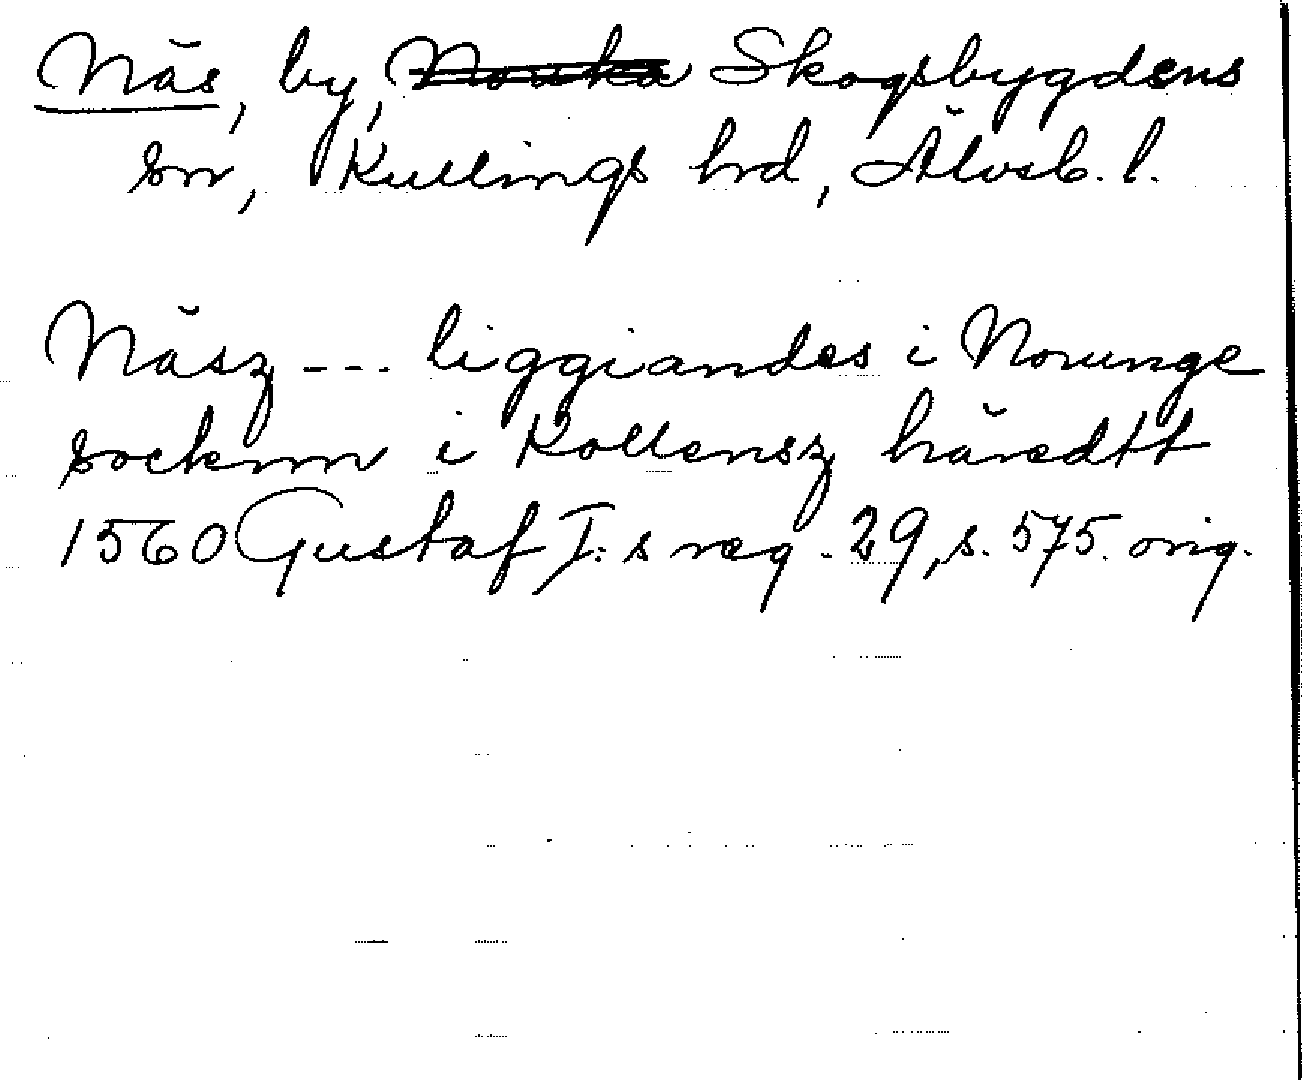 Näs, by, Skogsbygdens
sn, Kullings hrd, Älvsb. l.
Näsz --- liggiandes i Norunge
sockenn i Kollensz häredtt
1560 Gustaf I:s reg. 29, s. 575. orig.